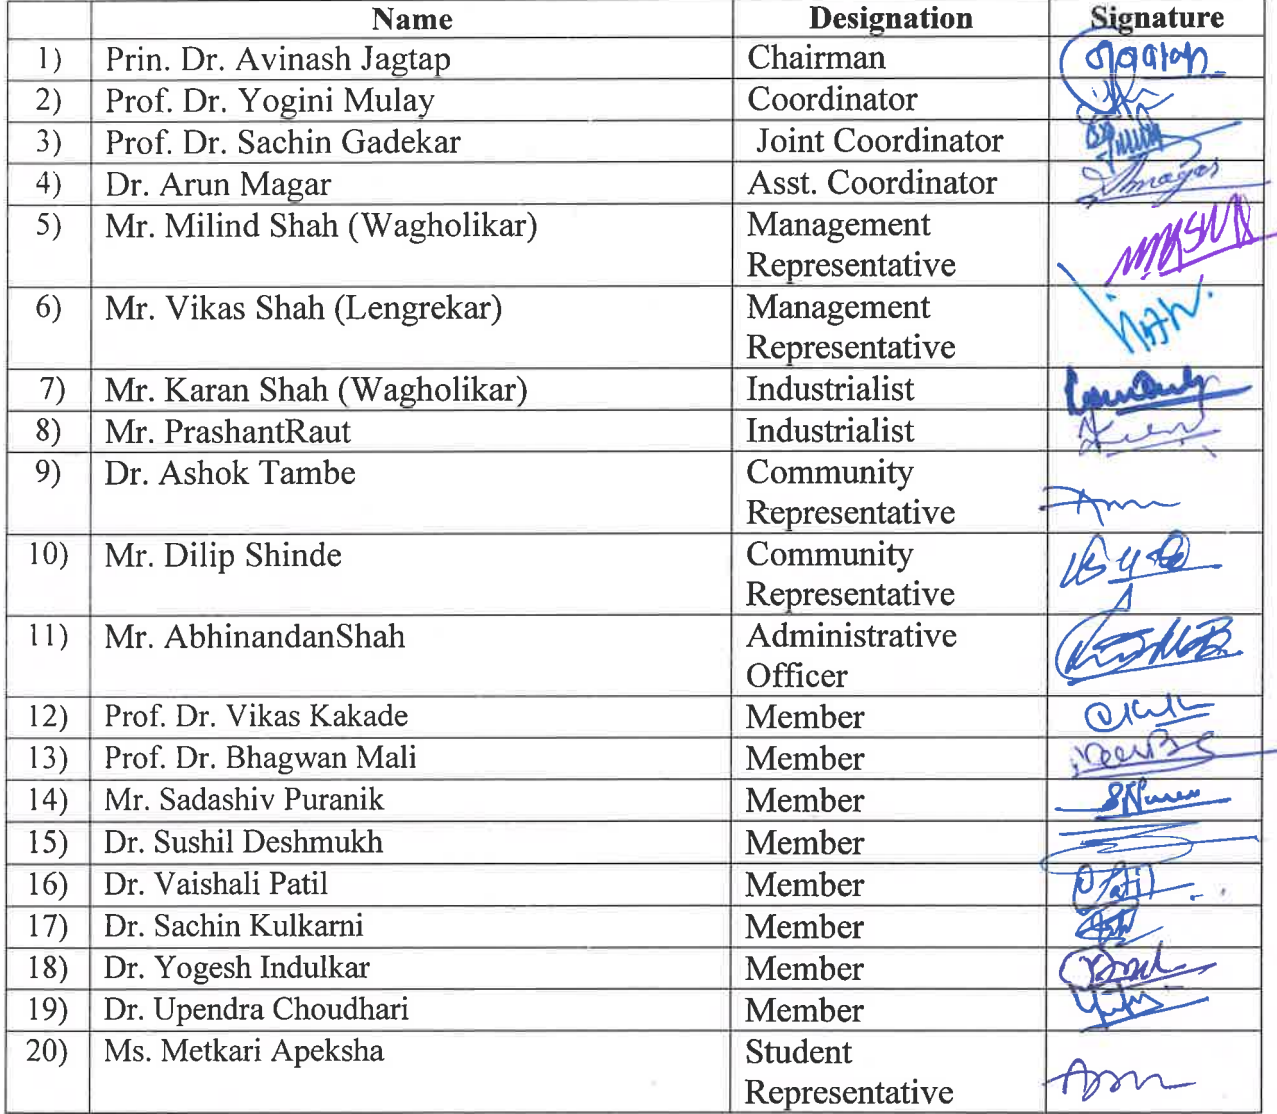 Name Designation Signature
1) Prin. Dr. Avinash Jagtap Chairman
2) Prof. Dr. Yogini Mulay Coordinator
3) Prof. Dr. Sachin Gadekar Joint Coordinator
4) Dr. Arun Magar Asst. Coordinator
5) Mr. Milind Shah (Wagholikar) Management
Representative
6) Mr. Vikas Shah (Lengrekar) Management
Representative
7) Mr. Karan Shah (Wagholikar) Industrialist
8) Mr. PrashantRaut Industrialist
9) Dr. Ashok Tambe Community
Representative
10) Mr. Dilip Shinde Community
Representative
11) Mr. AbhinandanShah Administrative
Officer
12) Prof. Dr. Vikas Kakade Member
13) Prof. Dr. Bhagwan Mali Member
14) Mr. Sadashiv Puranik Member
15) Dr. Sushil Deshmukh Member
16) Dr. Vaishali Patil Member
17) Dr. Sachin Kulkarni Member
18) Dr. Yogesh Indulkar Member
19) Dr. Upendra Choudhari Member
20) Ms. Metkari Apeksha Student
Representative